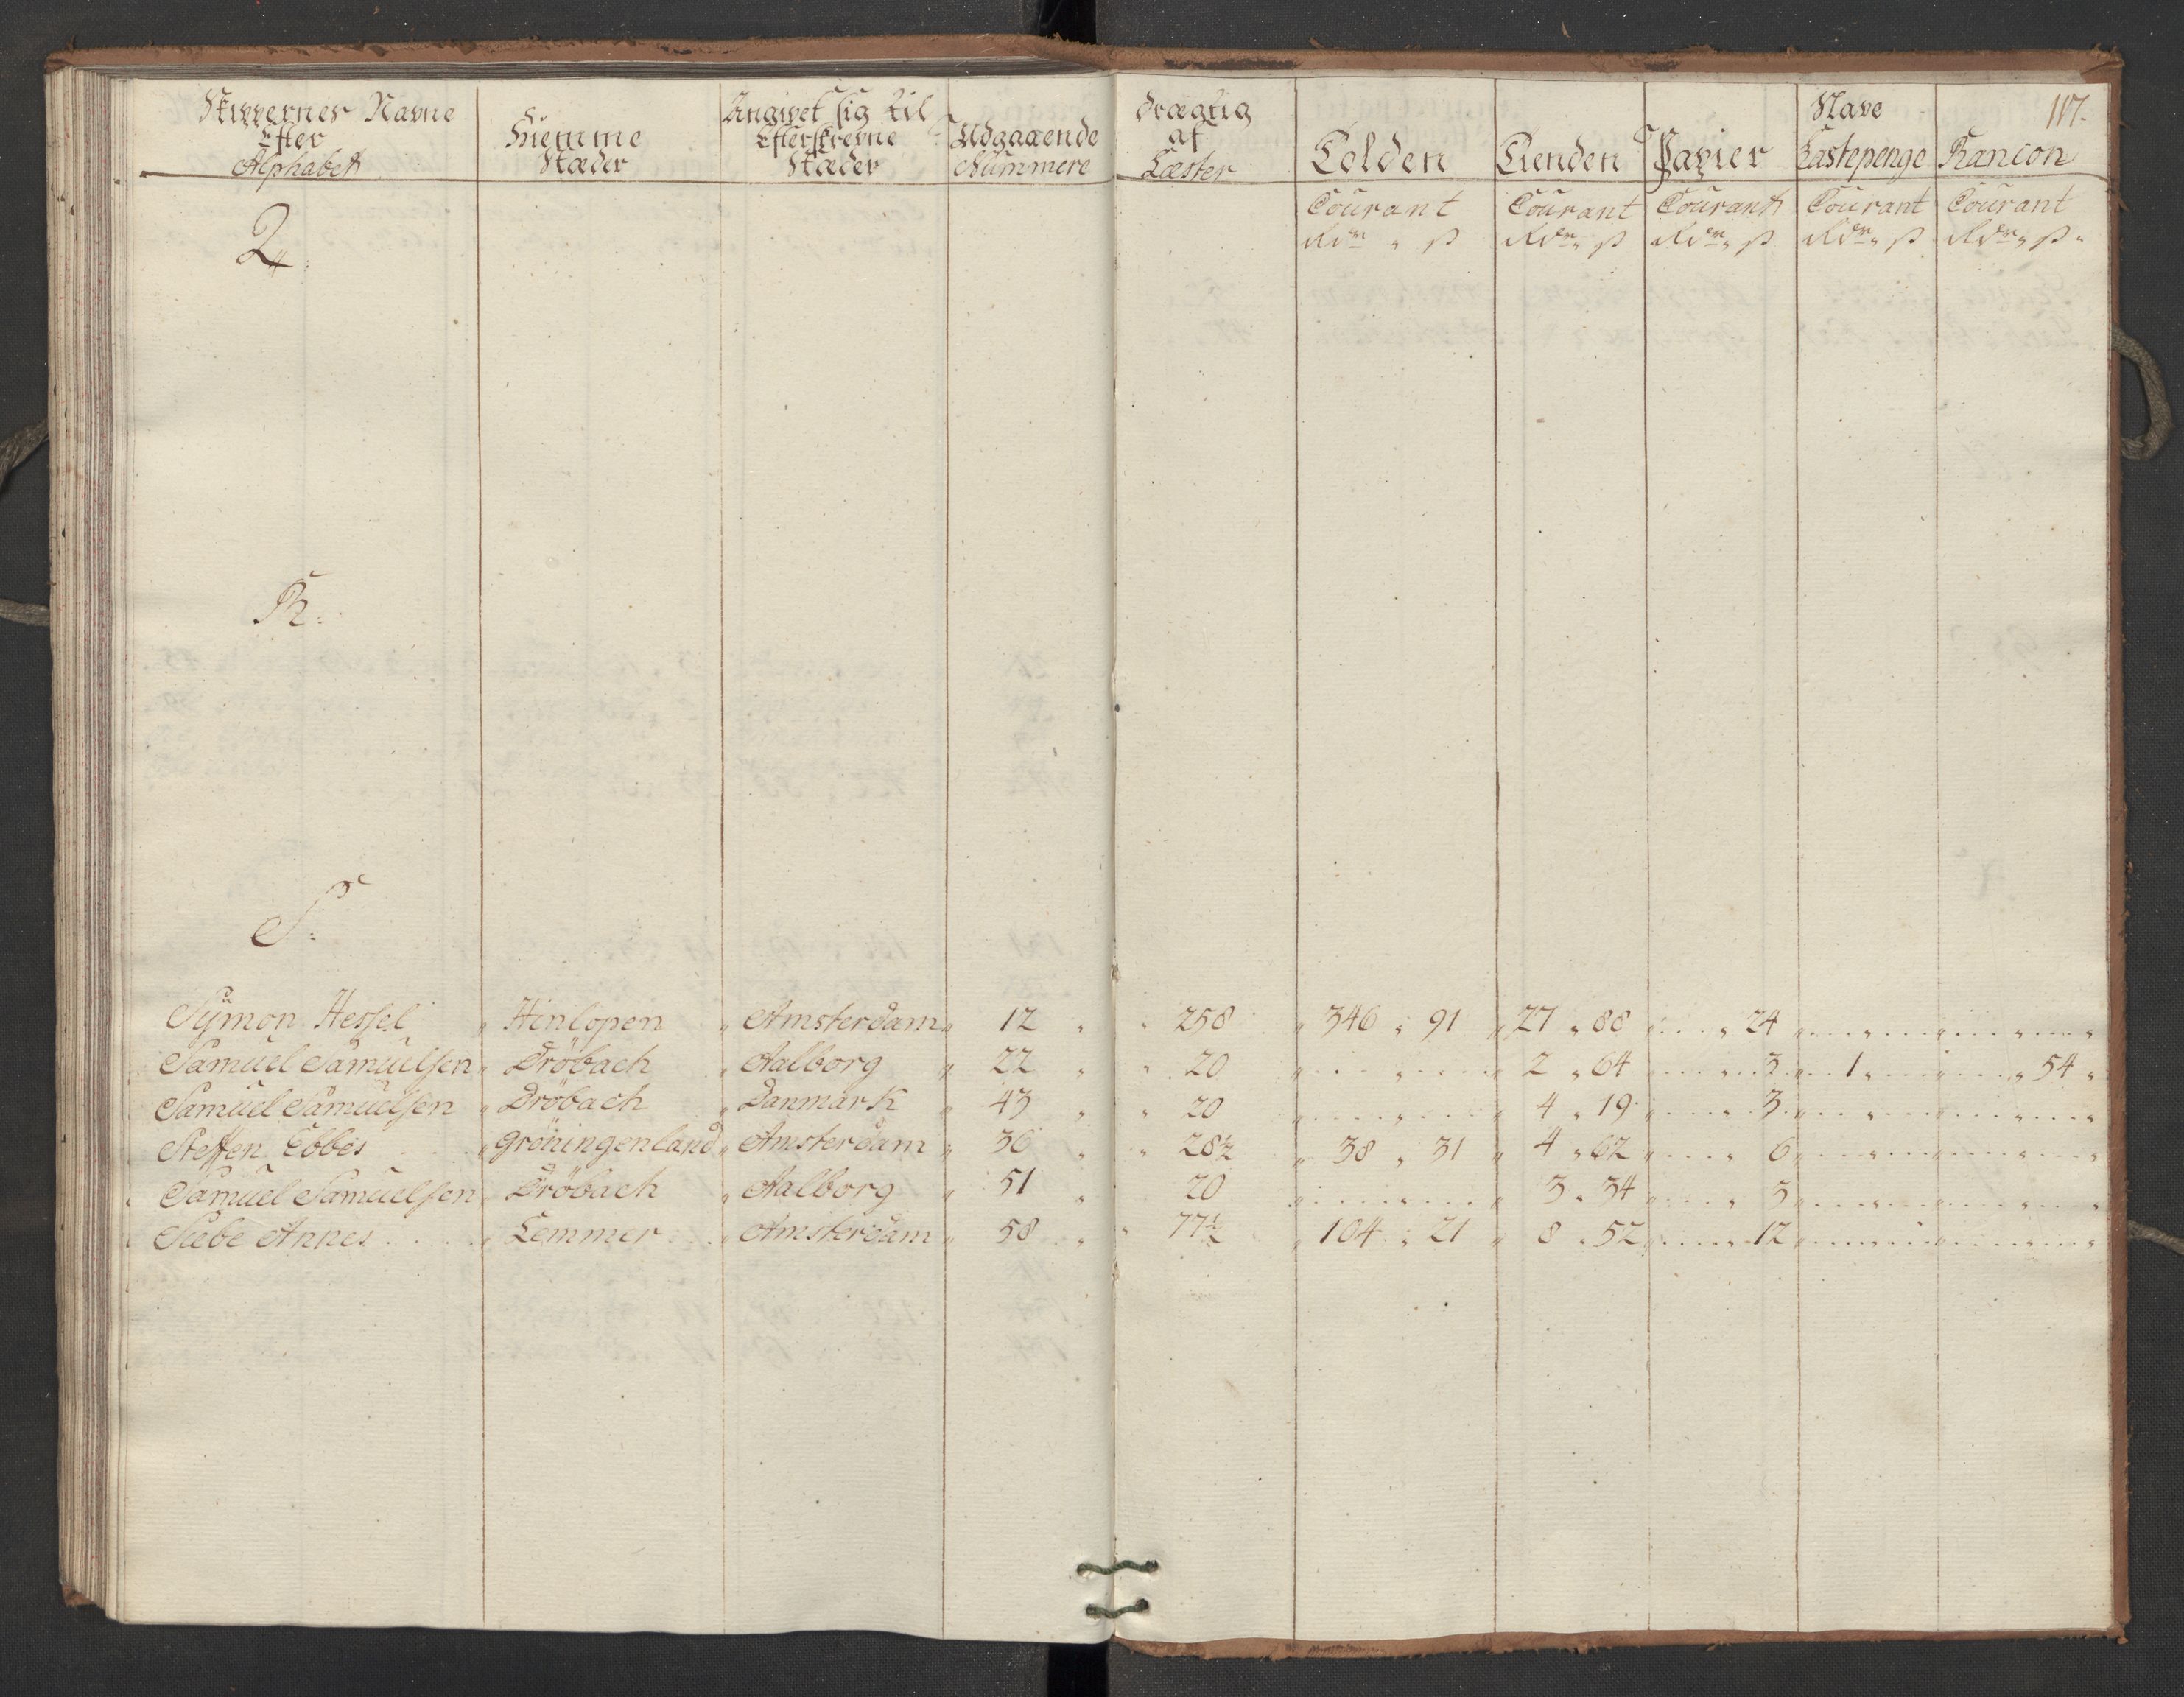 117.
Skippernes Navne Efter Alphabet | Hiemme Stæder | Angivet sig til Efterskrevne Stæder | Udgaaende Nummere | Drægtig af Læster | Tolden | Tienden | Papier | Have Lastepenge | Rancon
Courant | Courant | Courant | Courant | Courant
Rdr. ß | Rdr. ß | Rdr. ß | Rdr. ß | Rdr. ß
Q.
R.
S.
Sÿmon Hessel | Hinlopen | Amsterdam | 12 | 258 | 346 " 91 | 27 " 88 | " 24
Samuel Samuelsen | Dröbach | Aalborg | 22 | 20 | | 2 " 64 | " 3 | 1 " | " 54
Samuel Samuelsen | Dröbach | Danmark | 43 | 20 | | 4 " 19 | " 3
Steffen Ebbes | Gröningenland | Amsterdam | 36 | 28½ | 38 " 31 | 4 " 62 | " 6
Samuel Samuelsen | Dröbach | Aalborg | 51 | 20 | | 3 " 34 | " 3
Siebe Annes | Lemmer | Amsterdam | 58 | 77½ | 104 " 21 | 8 " 52 | " 12